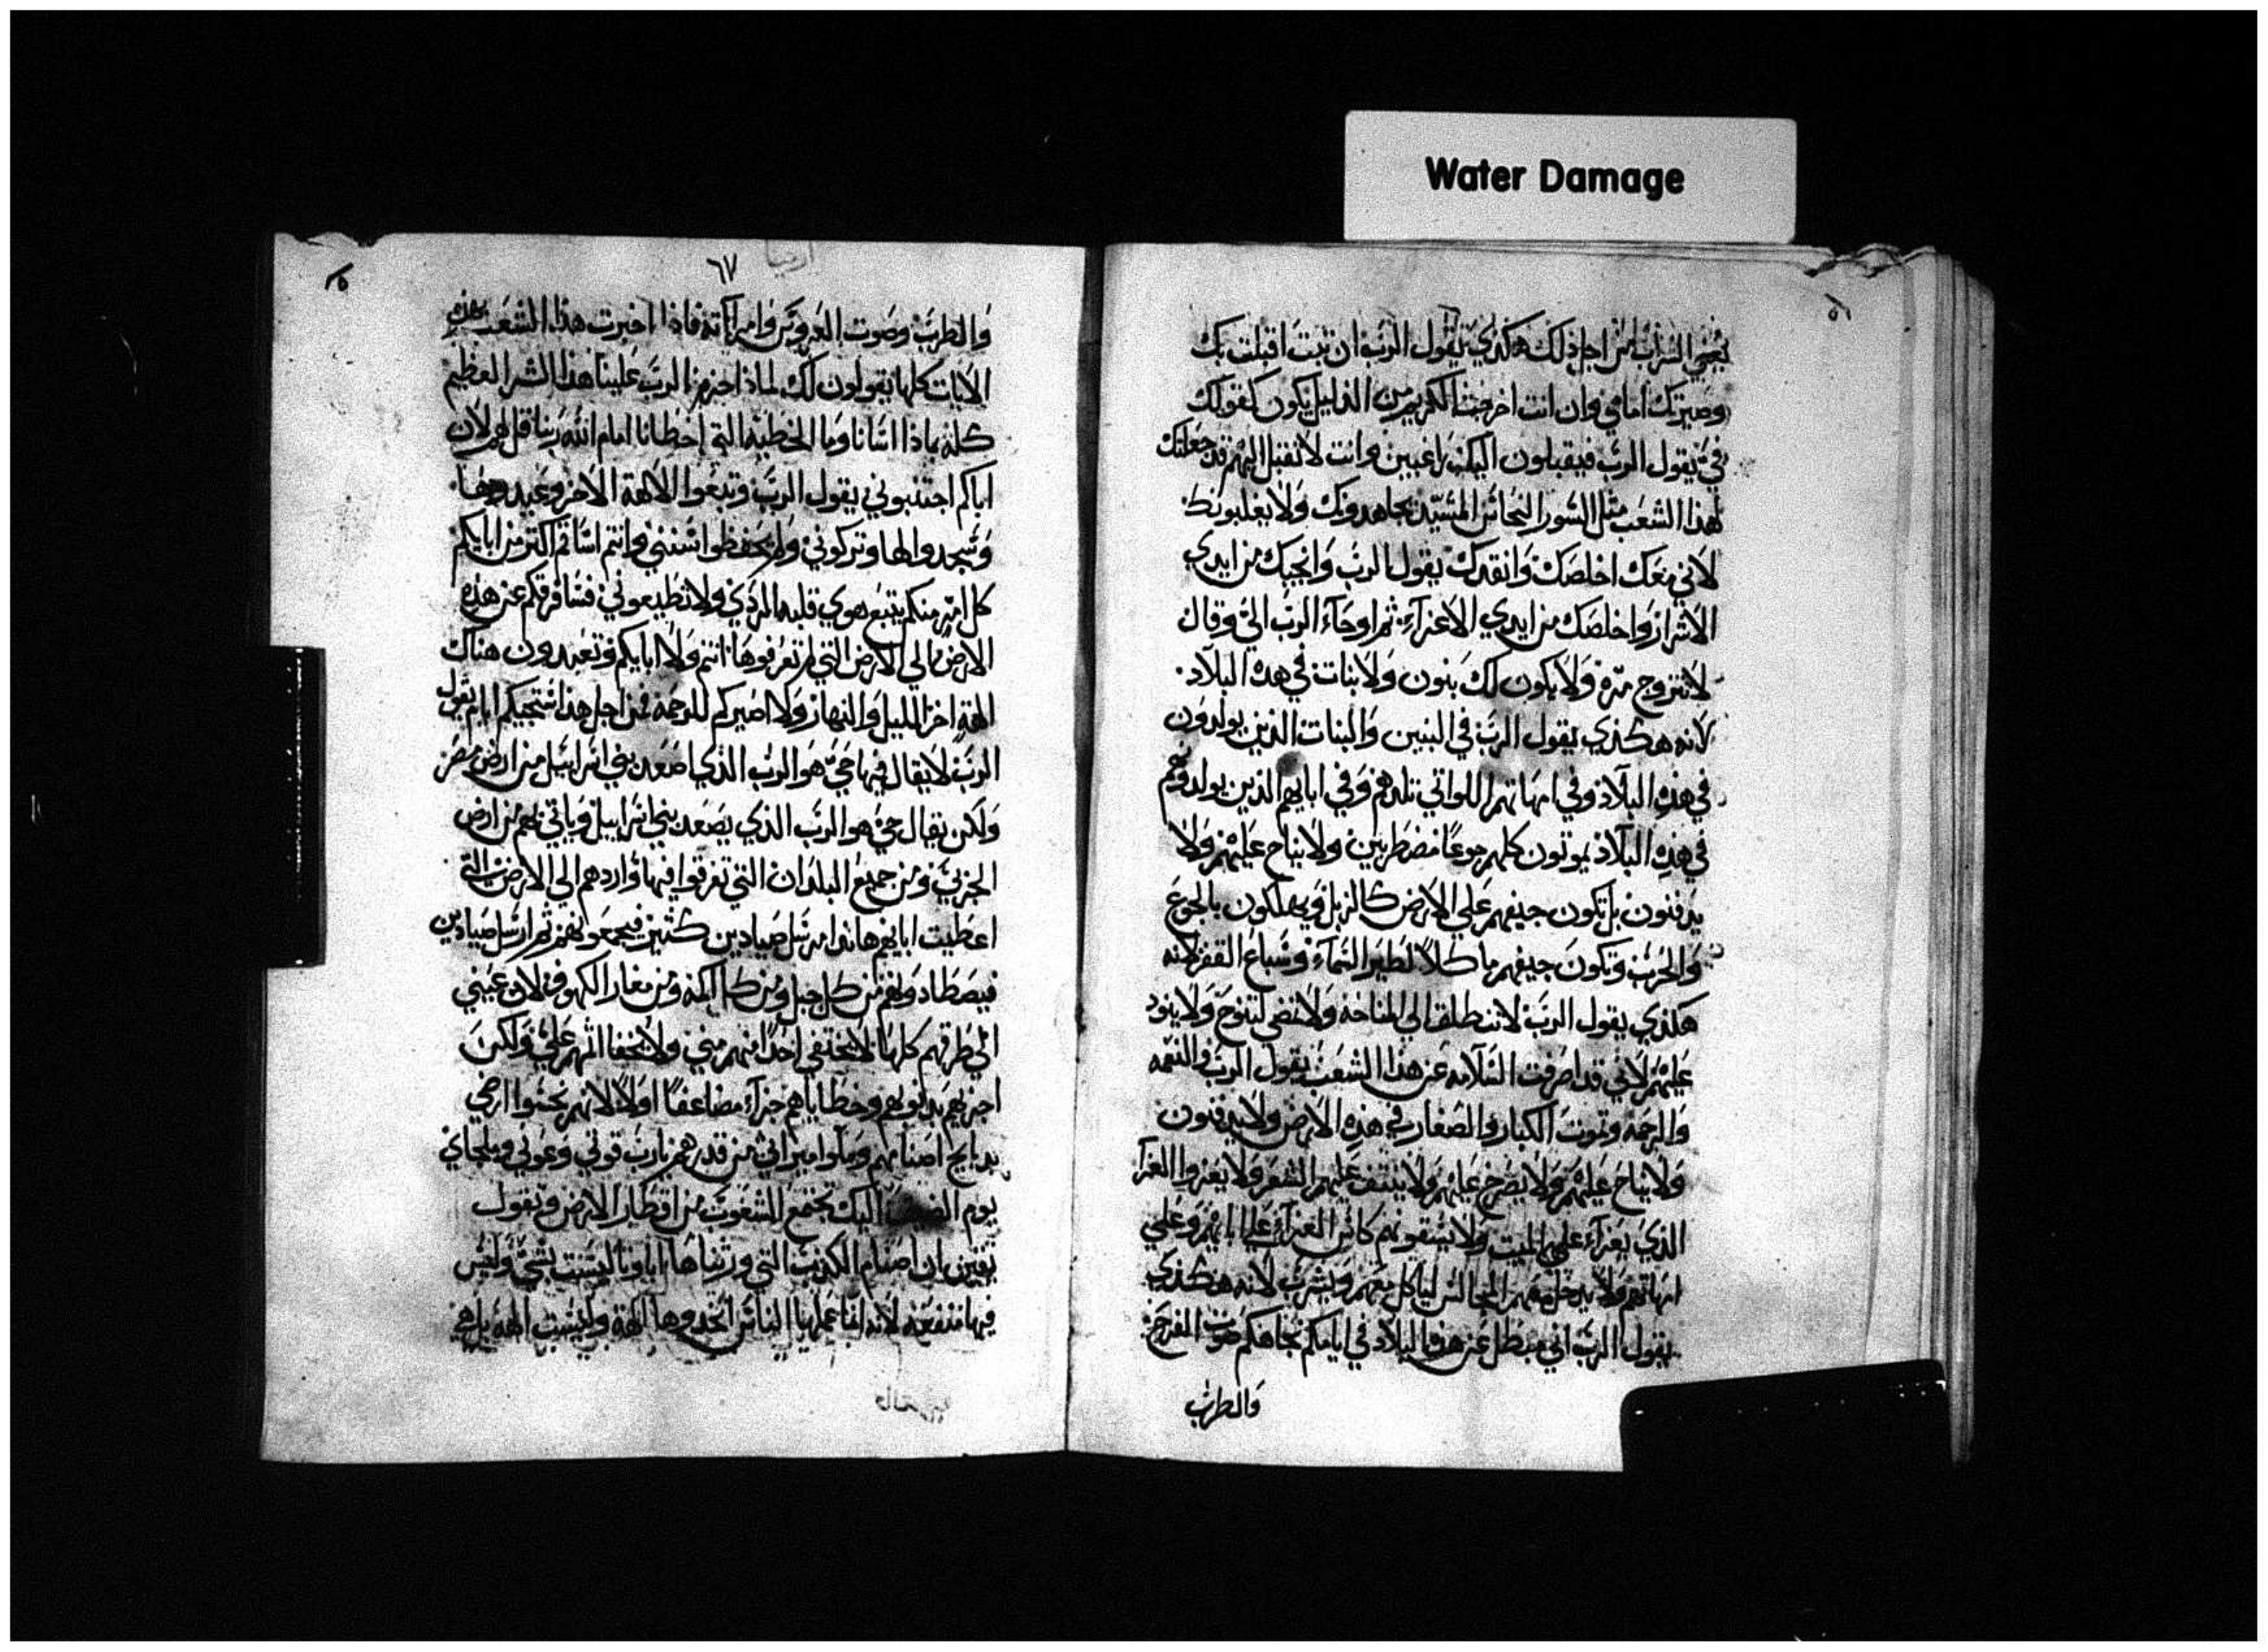 Water Damage
من اجل ذلك هكذي يقول الرب ان تبت اقبلت بك
وصيرتك امامي وان انت اخرجت الكريم من الذليل تكون كقولك
في يقول الرب فيقبلون اليك راغبين وانت لا تقبل اليهم قد جعلتك
لهذا الشعب مثل السور النحاس المشيد يجاهدونك ولا يغلبونك
لاني معك اخلصك وانقدك يقول الرب وانجيك من ايدي
الاشرار واخلصك من ايدي الاعزآء ثم اوحآء الرب الي وقال
لا تتزوج مرة ولا يكون لك بنون ولا بنات في هده البلاد
لانه هكذي يقول الرب في البنين والبنات الذين يولدون
في هذه البلاد وفي امهاتهم اللواتي تلدهم وفي ابايهم الذين يولدوهم
في هذه البلاد يموتون كلهم جوعًا مضطربين ولا يناح عليهم ولا
يدفنون بل تكون جيفهم علي الارض كالزبل ويهلكون بالجوع
والحرب وتكون جيفهم ماكلاً لطير السمآء وسباع القفر لانه
هكذي يقول الرب لا تنطلق الي المناحه ولا تمضي لتنوح ولا ينود
عليهم لاني قد اصرفت السلامه عن هذا الشعب يقول الرب والنعمه
والرحمه وتموت الكبار والصغار في هذه الارض ولا يدفنون
ولا يناح عليهم ولا يصرخ عليهم ولا ينتف عليهم الشعر ولا يعزوا العزآ
الذي يعزآء علي الميت ولا يسقونهم كاس العزآء علي ابايهم وعلي
امهاتهم ولا يدخل معهم المجالس لياكل معهم ويشرب لانه هكذي
يقول الرب اني مبطل عن هذه البلاد في ايامكم تجاهكم صوت الفرح
والطرب
٦٧
والطرب وصوت العروس وامرآته فاذا اخبرت هذا الشعب بهذه
الايات كلها يقولون لك لماذا اجزم الرب علينا هذا الشر العظيم
كله بماذا اسانا وما الخطية التي اخطانا امام الله ربنا قل لهم لان
اباكم اجتنبوني يقول الرب وتبعوا الالهة الاخر وعبدوها
وسجدوا لها وتركوني ولم يحفظوا سنني وانتم اساتم اكثر من ابايكم
كل امر منكم يتبع هوي قلبه الردي ولا تطيعوني فسافرقكم عن هذه
الارض الي الارض التي لم تعرفوها انتم ولا ابايكم وتعبدون هناك
الهة اخر الليل والنهار ولا اصيركم للرحمة من اجل هذا ايام يقول
الرب لا يقال فيها حي هو الرب الذي اصعد بني اسراييل من ارض مصر
ولكن يقال حي هو الرب الذي يصعد بني اسراييل وياتي بهم من ارض
الجربي ومن جميع البلدان التي تفرقوا فيها واردهم الي الارض التي
اعطيت ابايهم هانذا مرسل صيادين كثيره فيجمعونهم ثم ارسل صيادين
فيصطادونهم من كل جبل ومن كل اكمة ومن مغار الكهوف لان عيني
الي طرقهم كلها لا يختفي احدًا منهم مني ولا يخفا اثمهم علي ولكن
اجزيهم بدنوبهم وخطاياهم جزآء مضاعفًا اولاً لانهم نجسوا ارضي
بدبايح اصنامهم وملوا ميراثي من قدرهم يارب قوتي وعوني وملجاي
يوم اليك تجتمع الشعوب من اقطار الارض وتقول
يقين ان اصنام الكذب التي ورثناها ابآونا ليست بشي وليس
فيها منفعه لانه لما عملها الناس اتخدوها الهة وليست الهة بل هي